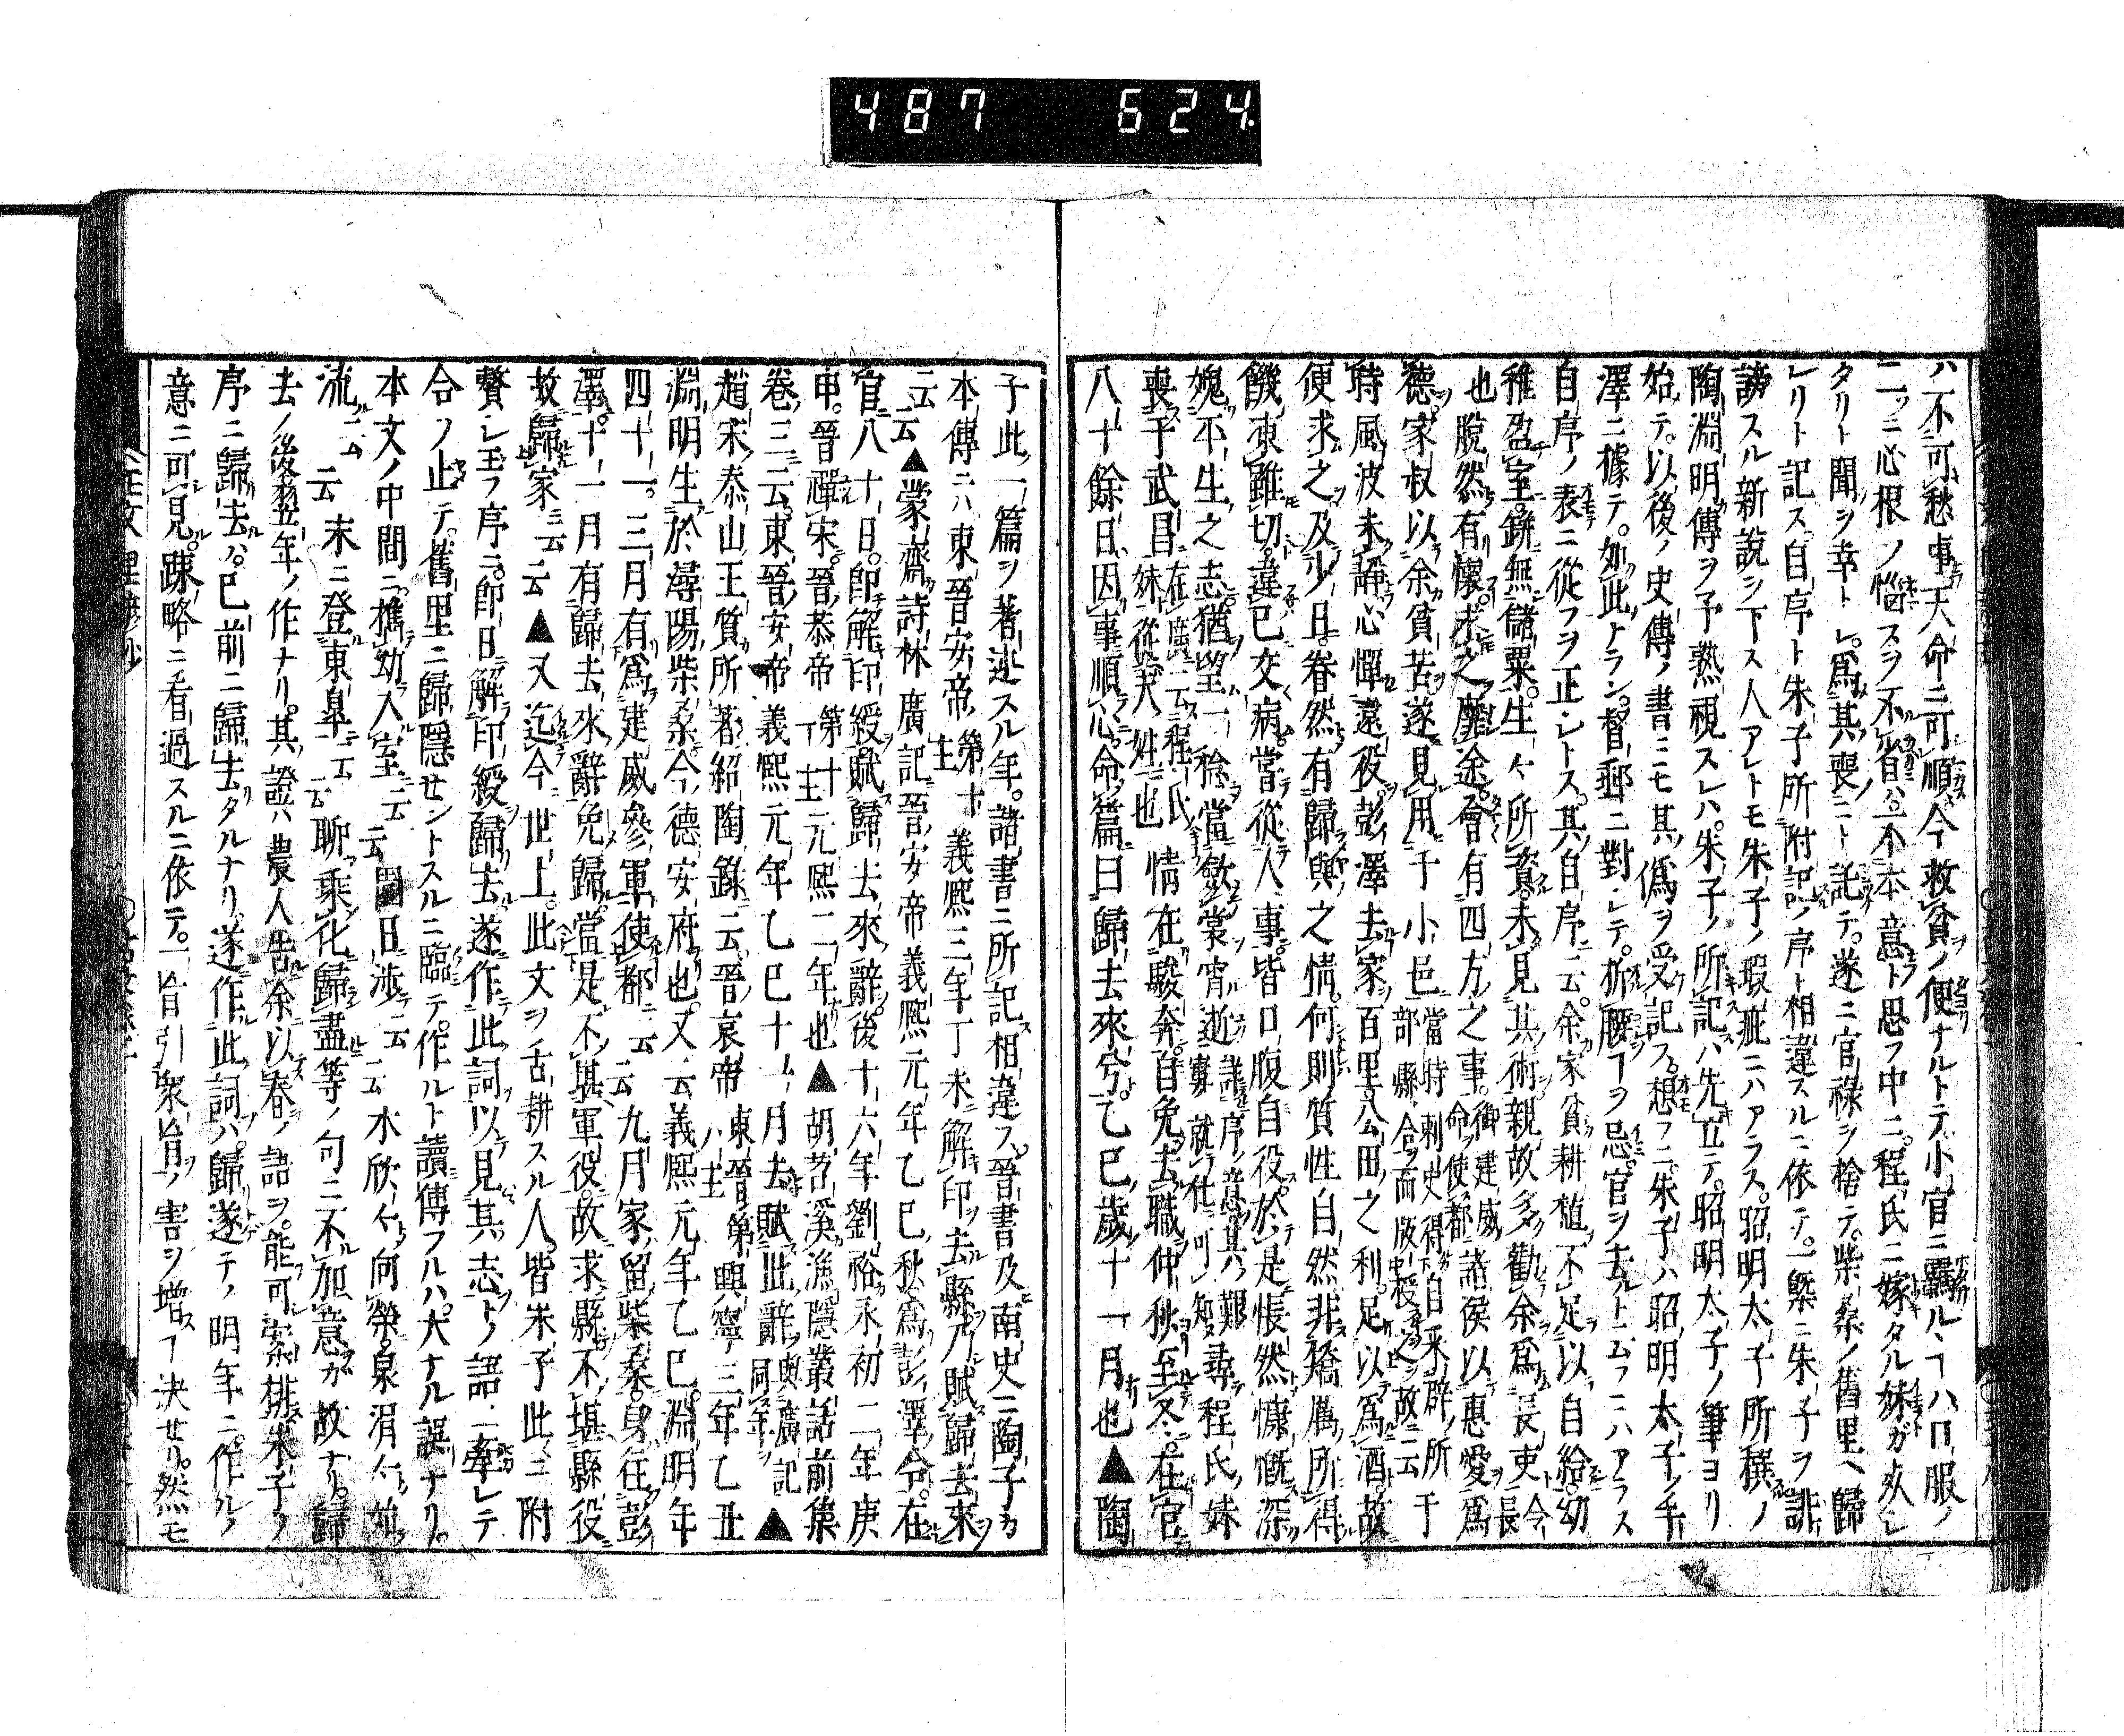 487 624
ハ不可愁事天命ニ可順今救貧ノ便ナルトテ小官ニ羈ルヽヿハ口服ノ
二ツニ心根ノ惱スヲ不省ハ不本意ト思フ中ニ程氏ニ嫁タル妹ガ失レ
タリト聞シ幸トレ爲其喪ニト託テ遂ニ官祿ヲ捨テ柴桑ノ舊里ヘ歸
レリト記ス自序ト朱子所附記ノ序ト相違スルニ依テ一槩ニ朱子ヲ誹
謗スル新説ヲ下ス人アレトモ朱子ノ瑕疵ニハアラス昭明太子所穓ノ
陶淵明傳ヲ予熟視スレハ朱子ノ所記ハ先立テ昭明太子ノ筆ヨリ
始テ以後ノ史傳ノ書ニモ其僞ヲ受記ス想フニ朱子ハ昭明太子ノ手
澤ニ據テ如此トラン督郵ニ對レテ折腰ヿヲ忌官ヲ去ルト云フニハアラス
自序ノ表ニ從フヲ正シトス其自序云余家貧耕植不足以自給幼
稚盈室缾無儲粟生々所資未見其術親故多勸余爲長吏
也脱然有懷求之靡途會有四方之事諸侯以惠愛爲
德家叔以余貧苦遂見用于小邑于
時風波未靜心憚遠役彭澤去家百里公田之利足以爲酒故
便求之及少日眷然有歸與之情何則質性自然非矯厲所得
饑凍雖切違已交病當從人事皆口腹自役於是悵然慷慨深
媿平生之志猶望一稔當斂裳宵逝尋程氏妹
喪于武昌情在駿奔自免去職仲秋至冬在官
八十餘日因事順心命篇曰歸去來兮乙巳歲十一月也▲陶
子此一篇ヲ著述スル年諸書ニ所記相違ス晉書及南史ニ陶子カ
本傳ニハ東晉安帝義熙三年丁未解印去縣乃賦歸去來
云云▲蒙齋詩林廣記晉安帝義熙元年乙巳秋爲彭澤令在
官八十日卽解印綬賦歸去來辭後十六年劉裕永初二年庚
申晉禪宋晉恭帝元熙二年也▲胡苕溪漁隱叢話前集
卷三云東晉安帝義熙元年乙巳十一月去賦此辭與廣記同年▲
趙宋泰山王質所著紹陶錄云晉哀帝興寧三年乙丑
淵明生於潯陽柴桑今德安府也又云義熙元年乙巳淵明年
四十一三月有爲建威參軍使都云云九月家留柴桑身往彭
澤十一月有歸去來辭免歸當是不堪軍役故求縣不堪縣役
故歸家云云▲又迄今世上此文ヲ舌耕スル人皆朱子此ニ附
贅レ玉フ序ニ卽日解印綬歸去遂作此詞以見其志トノ語ニ牽レテ
合ノ止テ舊里ニ歸隱セントスルニ臨テ作ルト讀傳フルハ大ナル誤ナリ
本文ノ中間ニ攜幼入室云云園日涉云云木欣々向榮泉涓々始
流云云末ニ登東皐云云聊乘化歸盡等ノ句ニ不加意ガ故ナリ歸
去ノ後翌年ノ作ナリ其證ハ農人告余以春ノ語ヲ能可案排朱子ノ
序ニ歸去ハ已前ニ歸去タルナリ遂作此詞ハ歸遂テノ明年ニ作ルノ
意ニ可見踈略ニ看過スルニ依テ一盲引衆盲ノ害ヲ増スヿ決セリ然モ